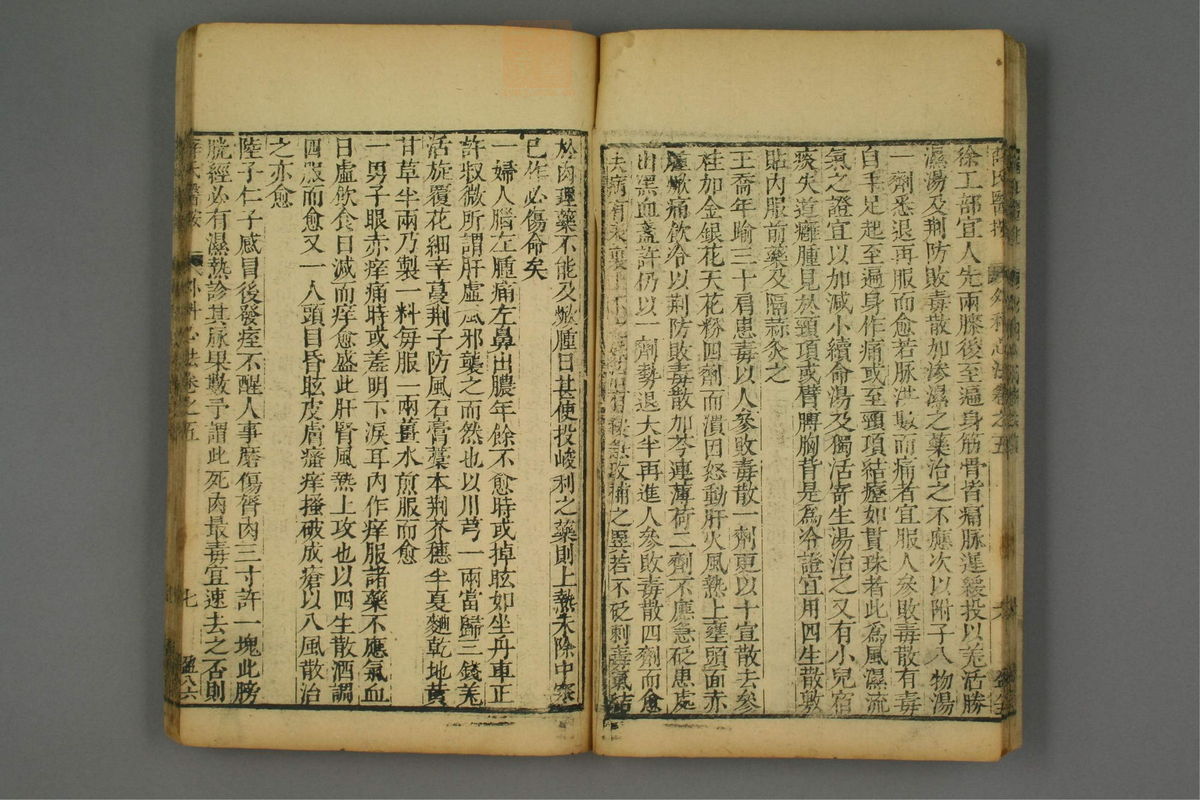 薛氏醫按 外科心法卷之五 六
徐工部宜人先兩膝後至遍身筋骨皆痛脉遲緩投以羌活勝
濕湯及荆防敗毒散加滲濕之藥治之不應次以附子八物湯
一劑悉退再服而愈若脉洪數而痛者宜服人參敗毒散有毒
自手足起至遍身作痛或至頸項結癧如貫珠者此為風濕流
氣之證宜以加减小續命湯及獨活寄生湯治之又有小兒宿
痰失道癰腫見於頸項或臂膊胸背是為冷證宜用四生散敷
貼内服前藥及隔蒜灸之
王喬年踰三十肩患毒以人參敗毒散一劑更以十宣散去參
桂加金銀花天花粉四劑而潰因怒動肝火風熱上壅頭面赤
腫㷔痛飲冷以荆防敗毒散加芩連薄荷二劑不應急砭患處
出黑血盞許仍以一劑勢退大半再進人參敗毒散四劑而愈
夫病有表裏上下 之若不砭刺毒氣結
於肉理藥不能及㷔腫日甚使投峻利之藥則上熱未除中寒
已作必傷命矣
一婦人腦左腫痛左鼻出膿年餘不愈時或掉眩如坐舟車正
許叔微所謂肝虛風邪襲之而然也以川芎一兩當歸三錢羌
活旋覆花細辛蔓荆子防風石膏藁本荆芥穗半夏麯乾地黃
甘草半兩乃製一料每服一兩薑水煎服而愈
一男子眼赤痒痛時或羞明下淚耳内作痒服諸藥不應氣血
日虛飲食日減而痒愈盛此肝腎風熱上攻也以四生散酒調
四服而愈又一人頭目昏眩皮膚瘙痒搔破成瘡以八風散治
之亦愈
陸子仁子感冒後發痓不醒人事磨傷臂肉三寸許一塊此膀
胱經必有濕熱診其脉果數予謂此死肉最毒宜速去之否則
薛氏醫按 外科心法卷之五 七 盈八六